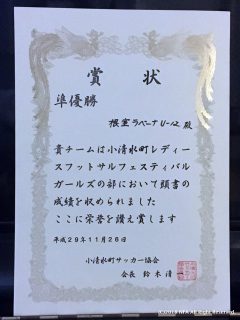 賞状
準優勝
根室ラベーナU-12 殿
貴チームは小清水町レディー
スフットサルフェスティバル
ガールズの部において頭書の
成績を収められました
ここに栄誉を讃え賞します
平成29年11月26日
小清水町サッカー協会
会長 鈴木清一